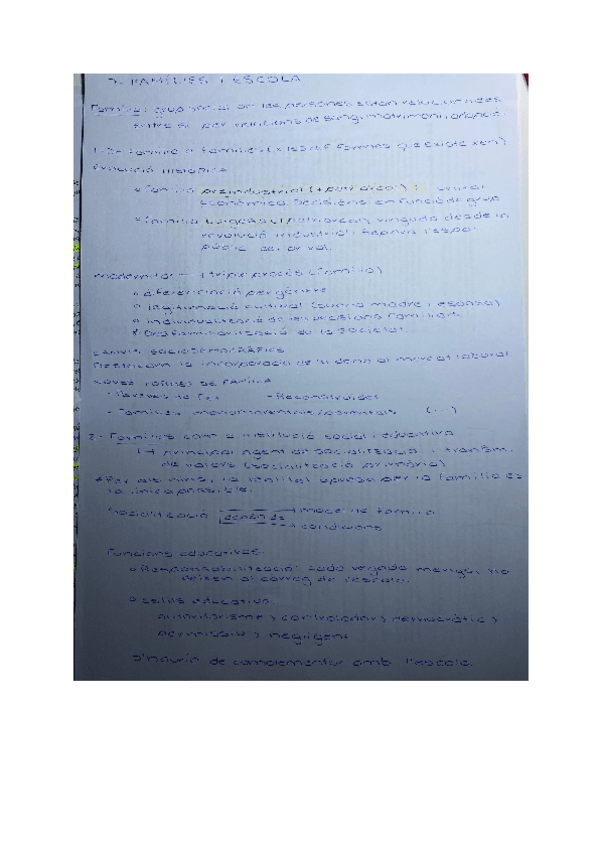 FAMÍLIES I ESCOLA
Família: grup social on les persones estan relacionades
entre si per relacions de sang, matrimoni, adopció.
Família a famílies (x les dif. formes que existeixen)
Evolució històrica
Família preindustrial (+ patriarcal): unitat
econòmica. Decisions en funció de grup
Família burgesa (patriarcal) vinguda desde la
revolució industrial. Separa l'espai
públic del privat.
modernitat → triple procés (família)
diferenciació per gènere
legitimació cultural (bona mare i esposa)
individualització de les persones familiars
Desfamiliarització de la societat.
CANVIS SOCIODEMOGRÀFICS
Destaquem la incorporació de la dona al mercat laboral
NOVES FORMES DE FAMÍLIA
- Parelles de fet - Reconstruides
- Famílies monomarentals/parentals (...)
2.- Famílies com a institució social i educativa
principal agent de socialització i transm.
de valors (socialització primària)
*Per als nins, la realitat apresa per la família és
la única possible.
*Socialització depèn de → model de família
→ condicions
Funcions educatives:
Responsabilització: cada vegada menys, ho
deixen al càrreg de l'escola.
Estils educatius:
autoritarisme, controlador, democràtic,
permissiu, negligent
S'hauria de complementar amb l'escola.